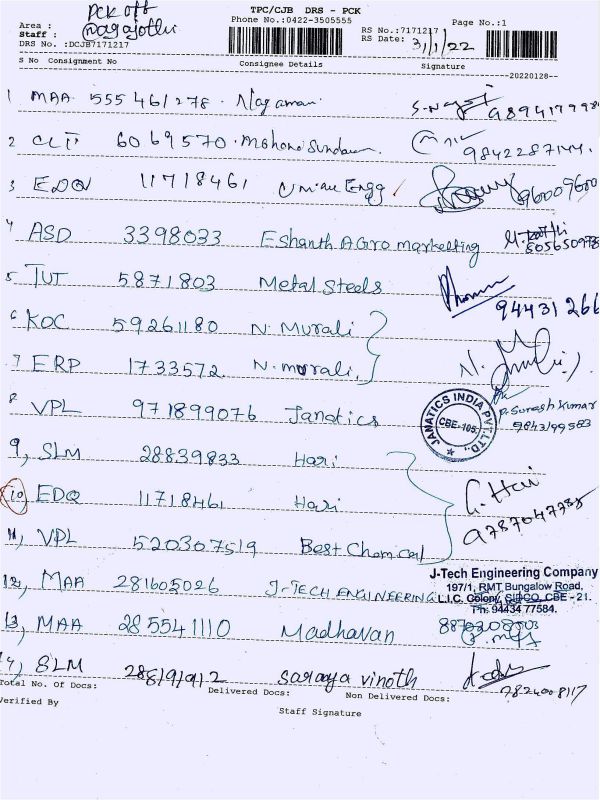 TPC/CJB DRS - PCK
Phone No.:0422-3505555
Page No.:1
Area : PCK off
Staff : @nagajothi
DRS No. :DCJB7171217
RS No.:7171217
RS Date: 3/1/22
S No Consignment No Consignee Details Signature
20220128
1 MAA 555461278 Nagamani
2 CLT 6069570 Mohana Sundaram 9842287144
3 EDQ 11718461 Umiau Engg 960009600
4 ASD 3398033 Eshanth Agro marketting
5 TUT 5871803 Metal Steels 94431266
6 KOC 59261180 N. Murali
7 ERP 1733572 N. murali N. Murali
8 VPL 971899076 Janatics JANATICS INDIA PVT. LTD., CBE-105. P. Suresh Kumar 9843199583
9, SLM 28839833 Hari
10 EDQ 11718461 Hari G. Hari
11, VPL 520307519 Best Chemical
12, MAA 281605026 J-TECH ENGINEERING
J-Tech Engineering Company
197/1, RMT Bungalow Road,
L.I.C. Colony, SIDCO, CBE - 21.
Ph: 94434 77584.
13, MAA 285541110 Madhavan
14, SLM saranya vinoth 7824008117
Total No. Of Docs: Delivered Docs: Non Delivered Docs:
Verified By Staff Signature